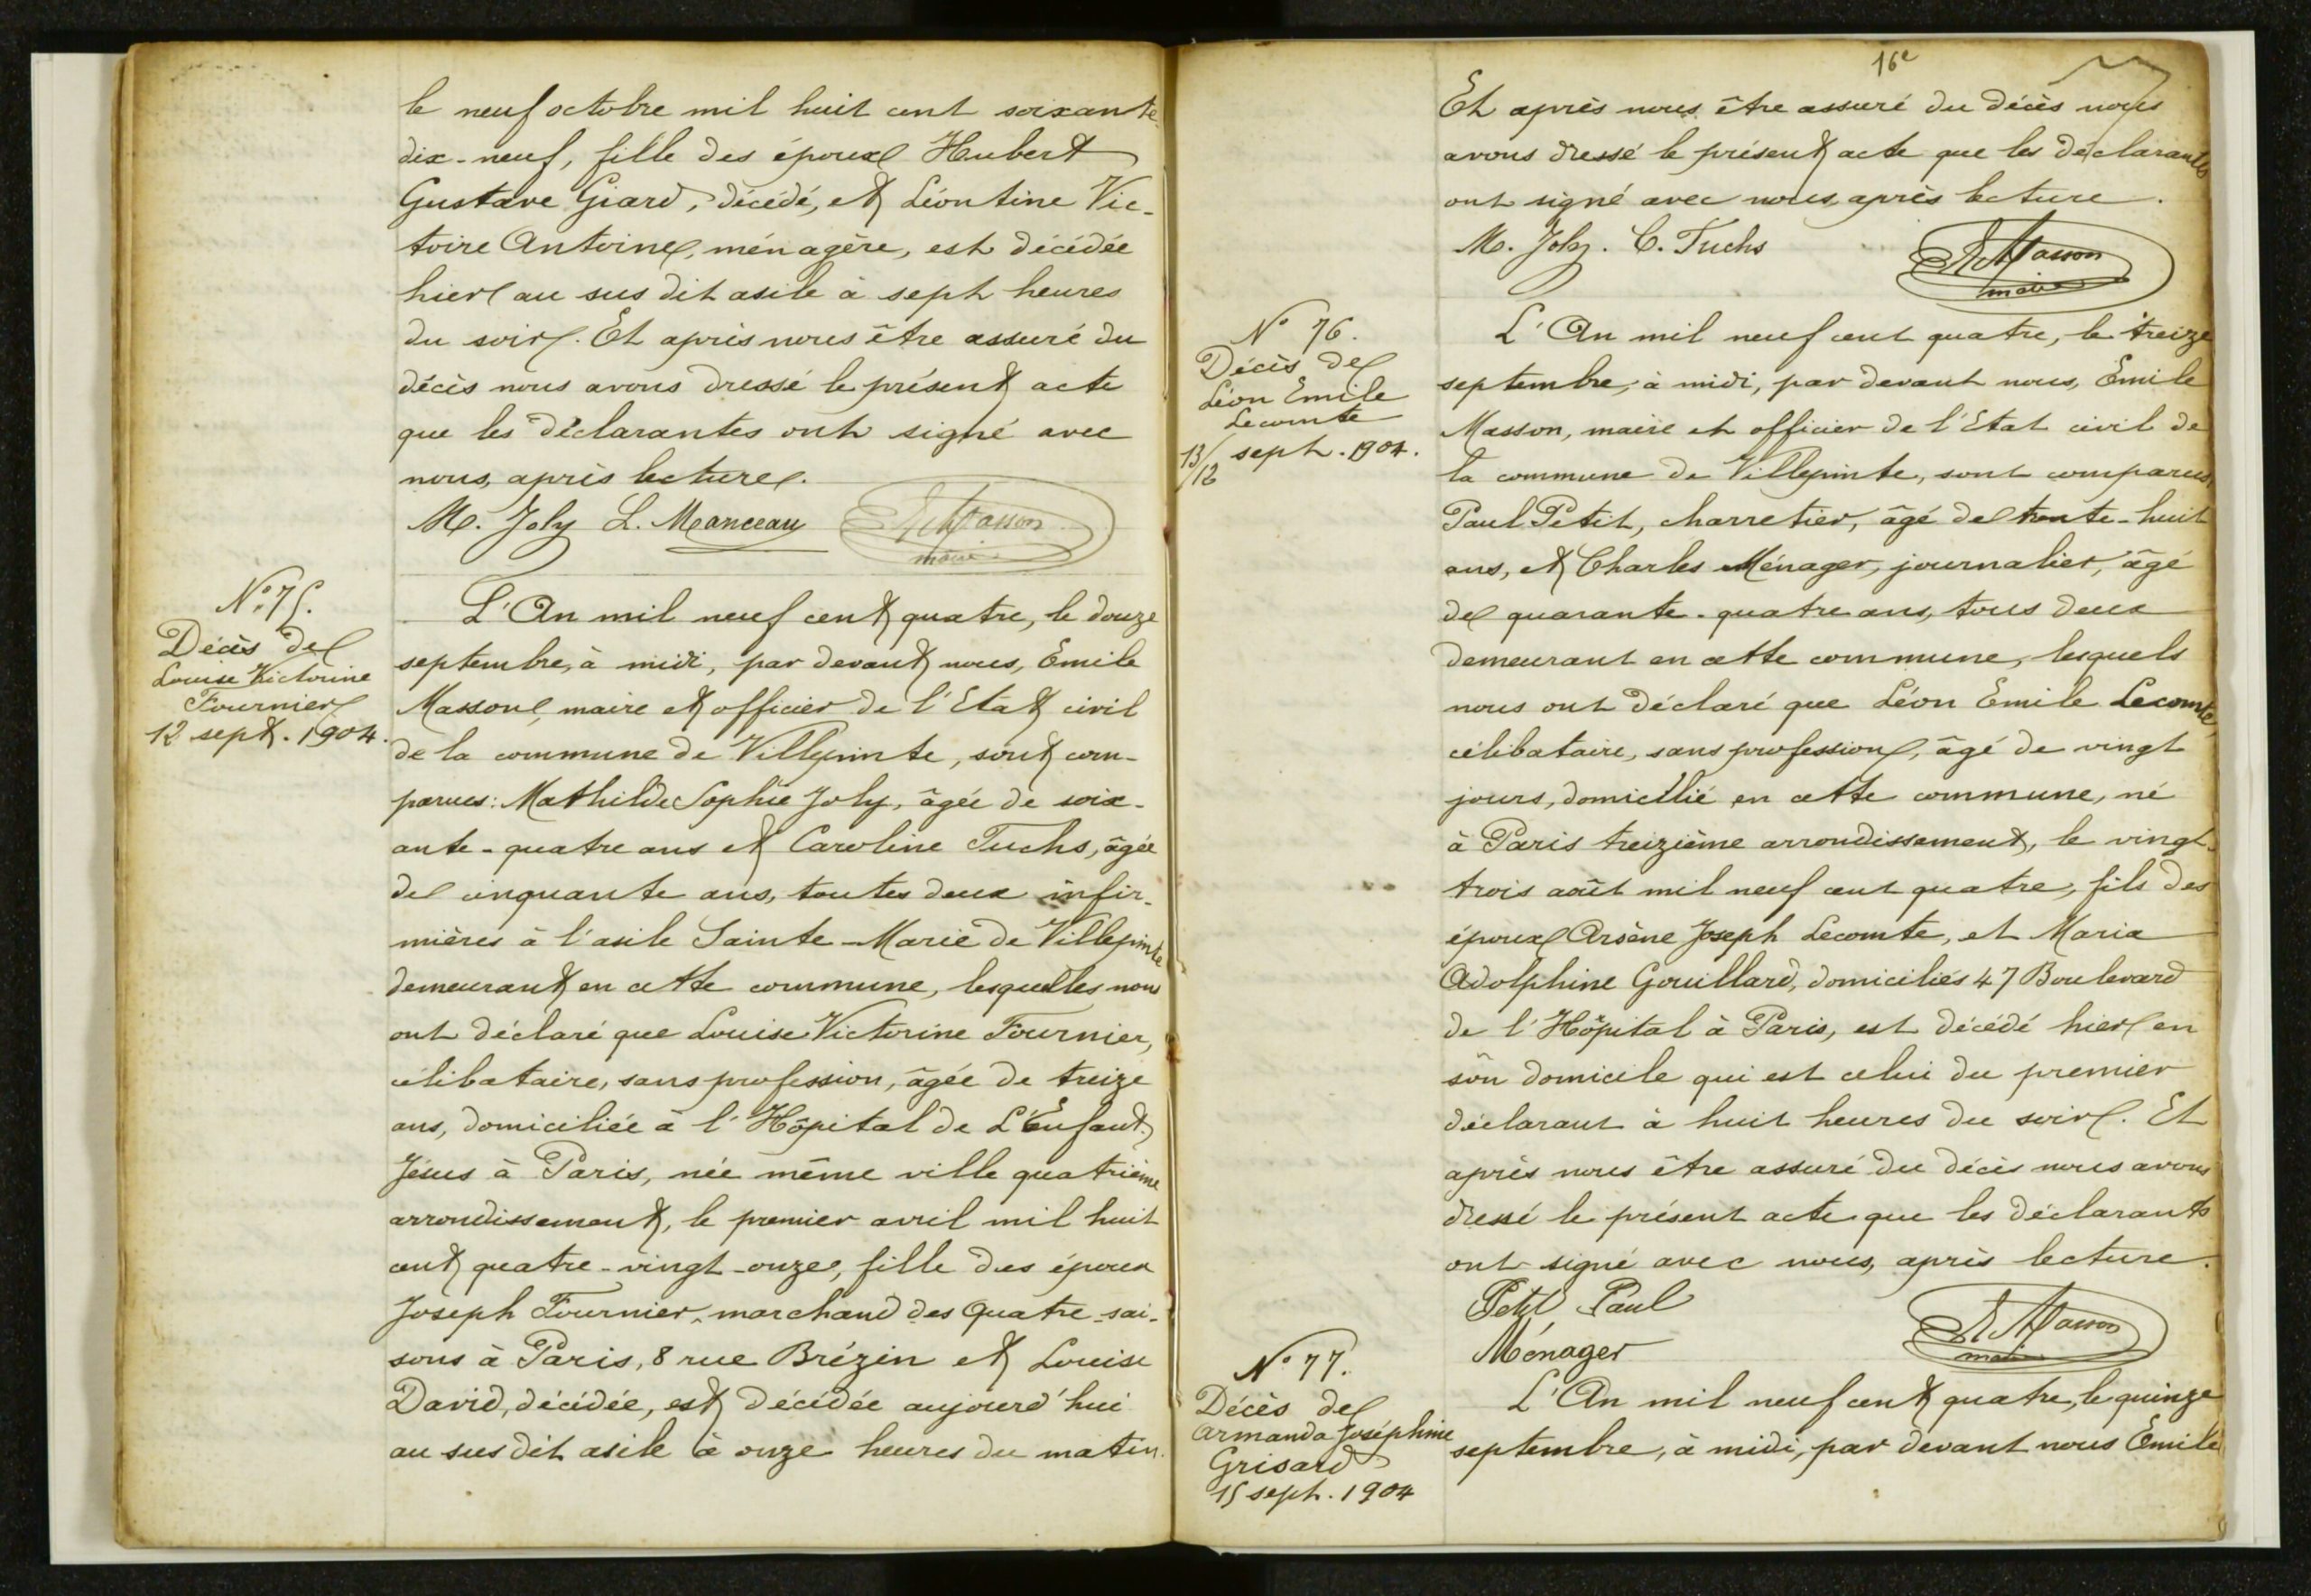 le neuf octobre mil huit cent soixante
dix-neuf, fille des époux Hubert
Gustave Giard, décédé, et Léontine Vic-
toire Antoine, ménagère, est décédée
hier au sus dit asile à sept heures
du soir. Et après nous être assuré du
décès nous avons dressé le présent acte
que les déclarantes ont signé avec
nous, après lecture.
M. Joly L. Manceau EMasson
maire
N° 75.
Décès de
Louise Victorine
Fournier
12 sept. 1904.
L'An mil neuf cent quatre, le douze
septembre, à midi, par devant nous, Emile
Masson, maire et officier de l'Etat civil
de la commune de Villepinte, sont com-
parues: Mathilde Sophie Joly, âgée de soix-
ante-quatre ans et Caroline Fuchs, âgée
de cinquante ans, toutes deux infir-
mières à l'asile Sainte-Marie de Villepinte
demeurant en cette commune, lesquelles nous
ont déclaré que Louise Victorine Fournier,
célibataire, sans profession, âgée de treize
ans, domiciliée à l'Hôpital de L'Enfant
Jésus à Paris, née même ville quatrième
arrondissement, le premier avril mil huit
cent quatre-vingt-onze, fille des époux
Joseph Fournier, marchand des quatre-sai-
sons à Paris, 8 rue Brézin et Louise
David, décédée, est décédée aujourd'hui
au sus dit asile à onze heures du matin.
16e
Et après nous être assuré du décès nous
avons dressé le présent acte que les déclarantes
ont signé avec nous, après lecture.
M. Joly. C. Fuchs EMasson
maire
N° 76.
Décès de
Léon Emile
Lecomte
13/12 sept. 1904.
L'An mil neuf cent quatre, le treize
septembre, à midi, par devant nous, Emile
Masson, maire et officier de l'Etat civil de
la commune de Villepinte, sont comparus,
Paul Petit, charretier, âgé de trente-huit
ans, et Charles Ménager, journalier, âgé
de quarante-quatre ans, tous deux
demeurant en cette commune, lesquels
nous ont déclaré que Léon Emile Lecomte,
célibataire, sans profession, âgé de vingt
jours, domicilié en cette commune, né
à Paris treizième arrondissement, le vingt-
trois août mil neuf cent quatre, fils des
époux Arsène Joseph Lecomte, et Maria
Adolphine Gouillard, domiciliés 47 Boulevard
de l'Hôpital à Paris, est décédé hier en
son domicile qui est celui du premier
déclarant à huit heures du soir. Et
après nous être assuré du décès nous avons
dressé le présent acte que les déclarants
ont signé avec nous, après lecture.
Petit Paul
Ménager EMasson
maire
N° 77.
Décès de
Armanda Joséphine
Grisard
15 sept. 1904
L'An mil neuf cent quatre, le quinze
septembre, à midi, par devant nous Emile